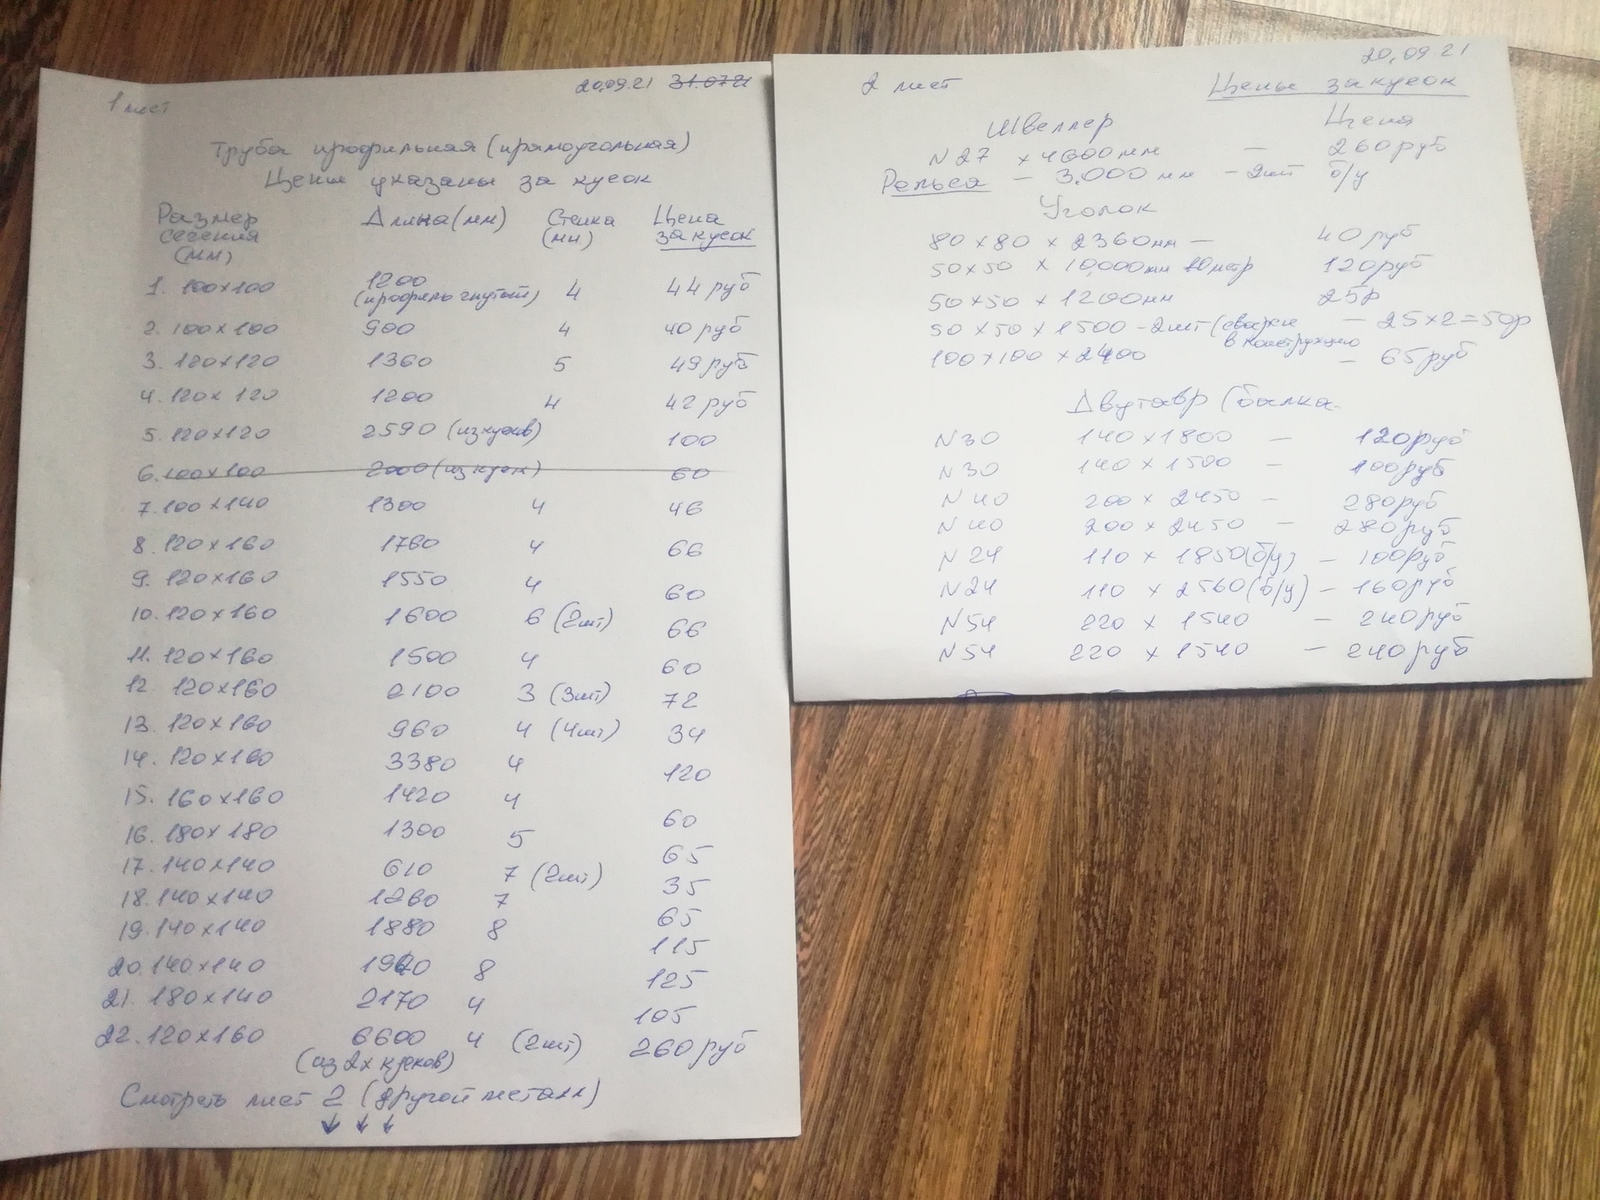 1 лист
20.09.21 31.07.21
Труба профильная (прямоугольная)
Цены указаны за кусок
Размер сечения (мм) Длина (мм) Стенка (мм) Цена за кусок
1. 100х100 1200 (профиль гнутый) 4 44 руб
2. 100х100 900 4 40 руб
3. 120х120 1360 5 49 руб
4. 120х120 1200 4 42 руб
5. 120х120 2590 (из кусков) 100
6. 100х100 2000 (из кусков) 60
7. 100х140 1300 4 46
8. 120х160 1760 4 66
9. 120х160 1550 4 60
10. 120х160 1600 6 (2шт) 66
11. 120х160 1500 4 60
12. 120х160 2100 3 (3шт) 72
13. 120х160 960 4 (4шт) 34
14. 120х160 3380 4 120
15. 160х160 1420 4 60
16. 180х180 1300 5 65
17. 140х140 610 7 (2шт) 35
18. 140х140 1260 7 65
19. 140х140 1880 8 115
20. 140х140 8 125
21. 180х140 2170 4 105
22. 120х160 6600 4 (2шт) 260 руб
(из 2х кусков)
Смотреть лист 2 (другой металл)
2 лист
20.09.21
Цены за кусок
Швеллер Цена
N27 х 4600мм — 260 руб
Рельса — 3.000мм — 2шт б/у
Уголок
80х80 х 2360мм — 40 руб
50х50 х 10,000мм 10метр 120руб
50х50 х 1200мм 25р
50х50х1500 - 2шт (сварен в конструкцию — 25х2=50р
100х100х2400 — 65 руб
Двутавр (балка.
N30 140х1800 — 120руб
N30 140х1500 — 100руб
N40 200х2450 — 280руб
N40 200х2450 — 280руб
N24 110 х 1850 (б/у) — 100руб
N24 110 х 2560 (б/у) — 160руб
N54 220 х 1540 — 240руб
N54 220 х 1540 — 240руб